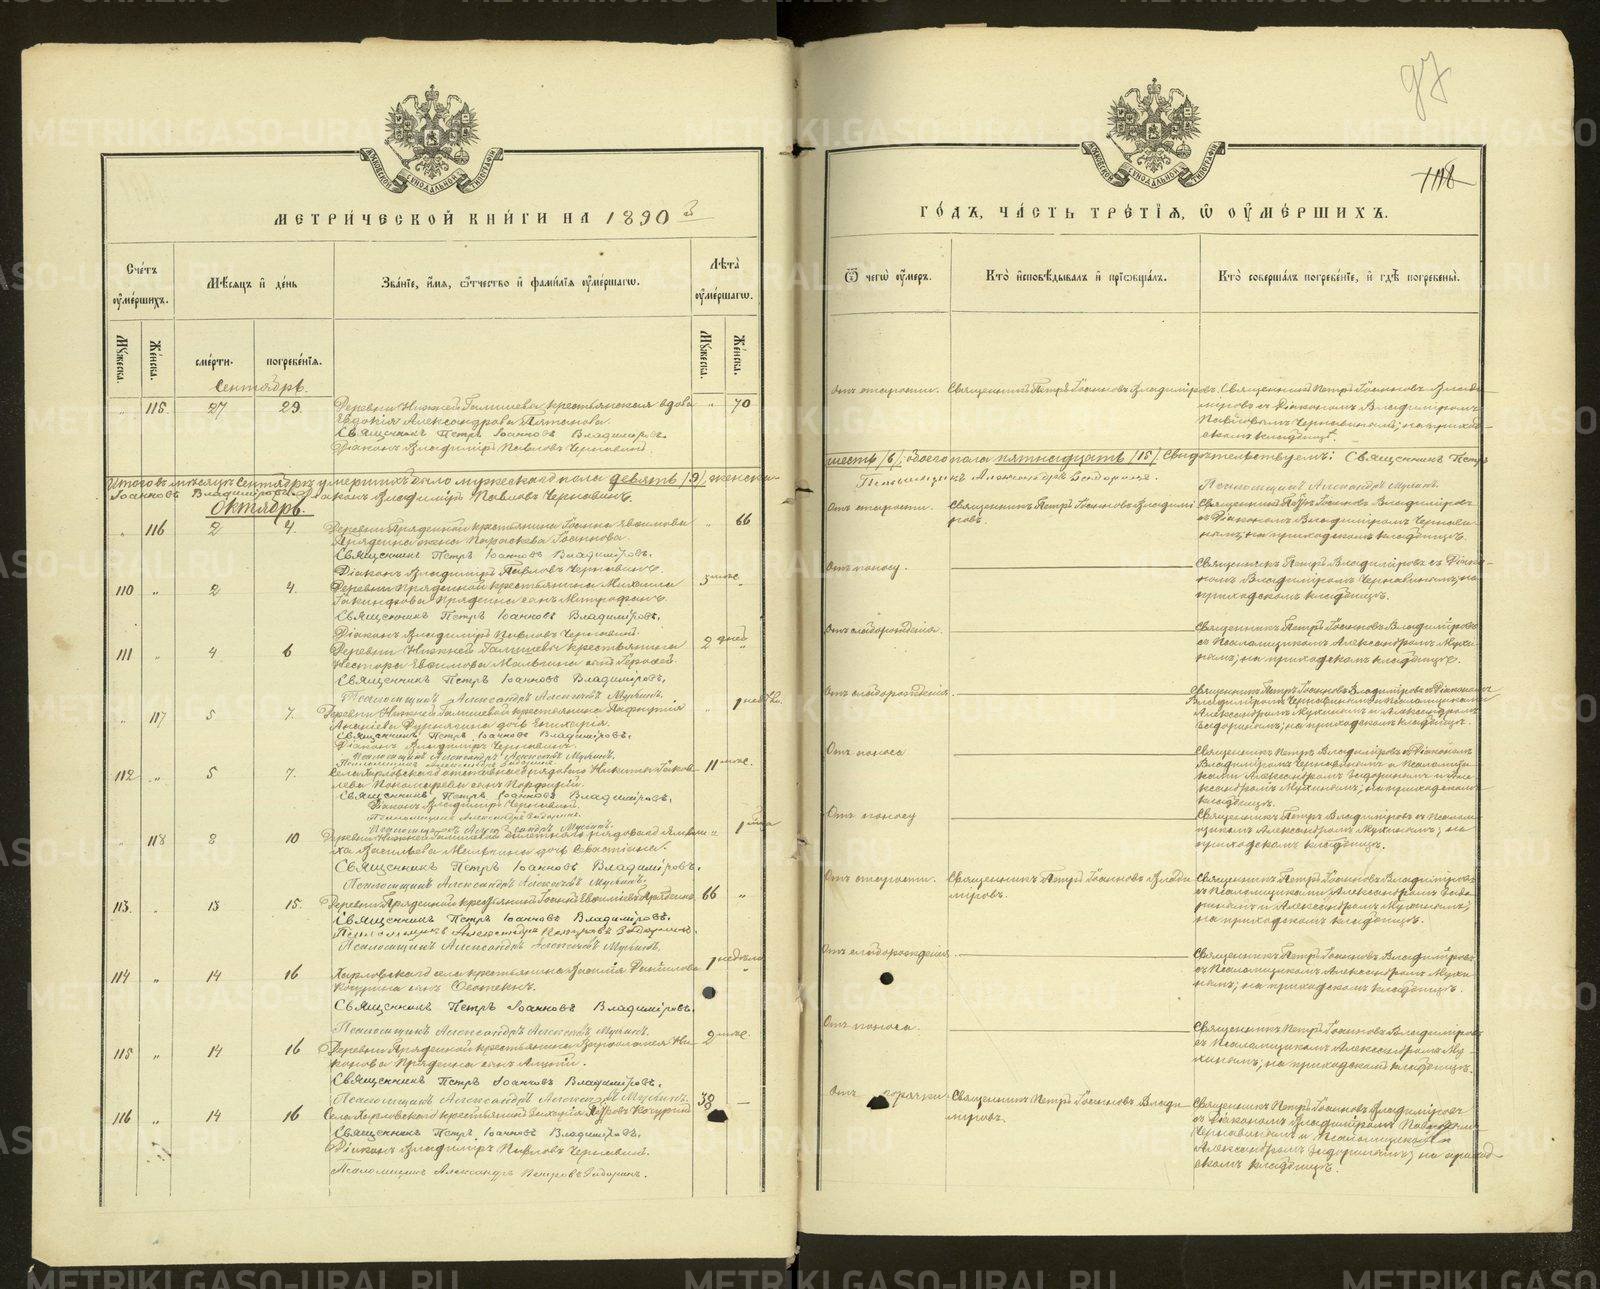 METRIKI.GASO-URAL.RU
97
118
МОСКОВСКОЙ СѴНОДАЛЬНОЙ ТИПОГРАФІИ
МЕТРИ́ЧЕСКОЙ КНИ́ГИ НА 1890
Сче́тъ ᲂу҆ме́ршихъ.
Мѣ́сѧцъ и҆ де́нь
Зва́нїе, и҆́мѧ, ѻ҆́тчество и҆ фамилїѧ ᲂу҆ме́ршагѡ.
Лѣта̀ ᲂу҆ме́ршагѡ.
Мꙋ́жеска.
Же́нска.
сме́рти.
погребе́нїѧ.
Мꙋ́жеска.
Же́нска.
Сентябрь.
" 115. 27 29. Деревни Нижней Галишевы крестьянская вдова " 70
Евдокія Александрова Пятанова.
Священникъ Петръ Іоанновъ Владиміровъ.
Діаконъ Владиміръ Павловъ Чернавинъ.
Итого въ мѣсяцѣ Сентябрѣ умершихъ было мужескаго пола девять /9/, женска-
Іоанновъ Владиміровъ. Діаконъ Владиміръ Павловъ Чернавинъ.
Октябрь.
" 116 2 4. Деревни Пряденной крестьянина Іоанна Евѳимова " 66
Пряденна жена Параскева Іоаннова.
Священникъ Петръ Іоанновъ Владиміровъ.
Діаконъ Владиміръ Павловъ Чернавинъ.
110 " 2 4. Деревни Пряденной крестьянина Михаила 5 мѣс. "
Іакинѳова Прядеина сынъ Митрофанъ.
Священникъ Петръ Іоанновъ Владиміровъ.
Діаконъ Владиміръ Павловъ Чернавинъ.
111 " 4 6 Деревни Нижней Галишевы крестьянина 2 дней "
Нестора Евѳимова Мальгина сынъ
Священникъ Петръ Іоанновъ Владиміровъ.
Псаломщикъ Александръ Алексѣевъ Мухинъ.
" 117 5 7. Деревни Нижней Галишевой крестьянина Пафнутія " 1
дочь
Священникъ Петръ Іоанновъ Владиміровъ.
Діаконъ Владиміръ Чернавинъ.
Псаломщикъ Александръ Алексѣевъ Мухинъ.
112 " 5 7. Села Харловскаго отставнаго рядоваго Никиты Іаковлева 11 мѣс.
Пономарева сынъ Порфирій.
Священникъ Петръ Іоанновъ Владиміровъ.
Діаконъ Владиміръ Чернавинъ.
" 118 8 10 Деревни Нижней Галишевой рядоваго " 1
Васильева Мальгина дочь Севастіана.
Священникъ Петръ Іоанновъ Владиміровъ.
Псаломщикъ Александръ Алексѣевъ Мухинъ.
113. " 13 15. Деревни Пряденной крестьянинъ Іоаннъ Евѳиміевъ Прядеинъ 66 "
Священникъ Петръ Іоанновъ Владиміровъ.
Псаломщикъ Александръ
Псаломщикъ Александръ Алексѣевъ Мухинъ.
114 " 14 16 Харловскаго села крестьянина Василія Даніилова 1 недѣли "
Кочурина сынъ
Священникъ Петръ Іоанновъ Владиміровъ.
Псаломщикъ Александръ Алексѣевъ Мухинъ.
115 " 14 16 Деревни Пряденной крестьянина Варѳоломея Ни- 2 мѣс.
конова Прядеина сынъ
Священникъ Петръ Іоанновъ Владиміровъ.
Псаломщикъ Александръ Алексѣевъ Мухинъ.
116 " 14 16 Села Харловскаго крестьянинъ Захарія Петровъ Кочуринъ 39 —
Священникъ Петръ Іоанновъ Владиміровъ.
Діаконъ Владиміръ Павловъ Чернавинъ.
Псаломщикъ Александръ Петровъ
МОСКОВСКОЙ СѴНОДАЛЬНОЙ ТИПОГРАФІИ
ГО́ДЪ, ЧА́СТЬ ТРЕ́ТІѦ, Ѡ҆ ОУ҆МЕ́РШИХЪ.
Ѿ чегѡ̀ ᲂу҆́меръ.
Кто̀ и҆сповѣ́дывалъ и҆ прїѡбща́лъ.
Кто̀ соверша́лъ погребе́нїе, и҆ гдѣ̀ погребены̀.
Отъ старости. Священникъ Петръ Іоанновъ Владиміровъ. Священникъ Петръ Іоанновъ Влади-
міровъ съ Діакономъ Владиміромъ
Павловымъ Чернавинымъ; на приход-
скомъ кладбищѣ.
шесть /6/, обоего пола пятнадцать /15/. Свидѣтельствуемъ: Священникъ Петръ
Псаломщикъ Александръ
Псаломщикъ Александръ Мухинъ.
Отъ старости. Священникъ Петръ Іоанновъ Владимі- Священникъ Петръ Іоанновъ Владиміровъ
ровъ. съ Діакономъ Владиміромъ Чернави-
нымъ; на приходскомъ кладбищѣ.
Отъ поносу. Священникъ Петръ Владиміровъ съ Діако-
номъ Владиміромъ Чернавинымъ; на
приходскомъ кладбищѣ.
Отъ слаборожденія. Священникъ Петръ Іоанновъ Владиміровъ
съ Псаломщикомъ Александромъ Мухи-
нымъ; на приходскомъ кладбищѣ.
Отъ слаборожденія. Священникъ Петръ Іоанновъ Владиміровъ съ Діакономъ
Владиміромъ Чернавинымъ и Псаломщиками
Александромъ Мухинымъ и Александромъ
на приходскомъ кладбищѣ.
Отъ поноса Священникъ Петръ Владиміровъ съ Діакономъ
Владиміромъ Чернавинымъ и Псаломщи-
ками Александромъ и Але-
ксандромъ Мухинымъ; на приходскомъ
кладбищѣ.
Отъ поносу Священникъ Петръ Владиміровъ съ Псалом-
щикомъ Александромъ Мухинымъ; на
приходскомъ кладбищѣ.
Отъ старости. Священникъ Петръ Іоанновъ Влади- Священникъ Петръ Іоанновъ Владиміровъ
міровъ. съ Псаломщиками Александромъ
и Александромъ Мухинымъ;
на приходскомъ кладбищѣ.
Отъ слаборожденія Священникъ Петръ Іоанновъ Владиміровъ
съ Псаломщикомъ Александромъ Мухи-
нымъ; на приходскомъ кладбищѣ.
Отъ поноса. Священникъ Петръ Іоанновъ Владиміровъ
съ Псаломщикомъ Александромъ Му-
хинымъ; на приходскомъ кладбищѣ.
Отъ горячки. Священникъ Петръ Іоанновъ Влади- Священникъ Петръ Іоанновъ Владиміровъ
міровъ. съ Діакономъ Владиміромъ Павловымъ
Чернавинымъ и Псаломщикомъ
Александромъ на приход-
скомъ кладбищѣ.